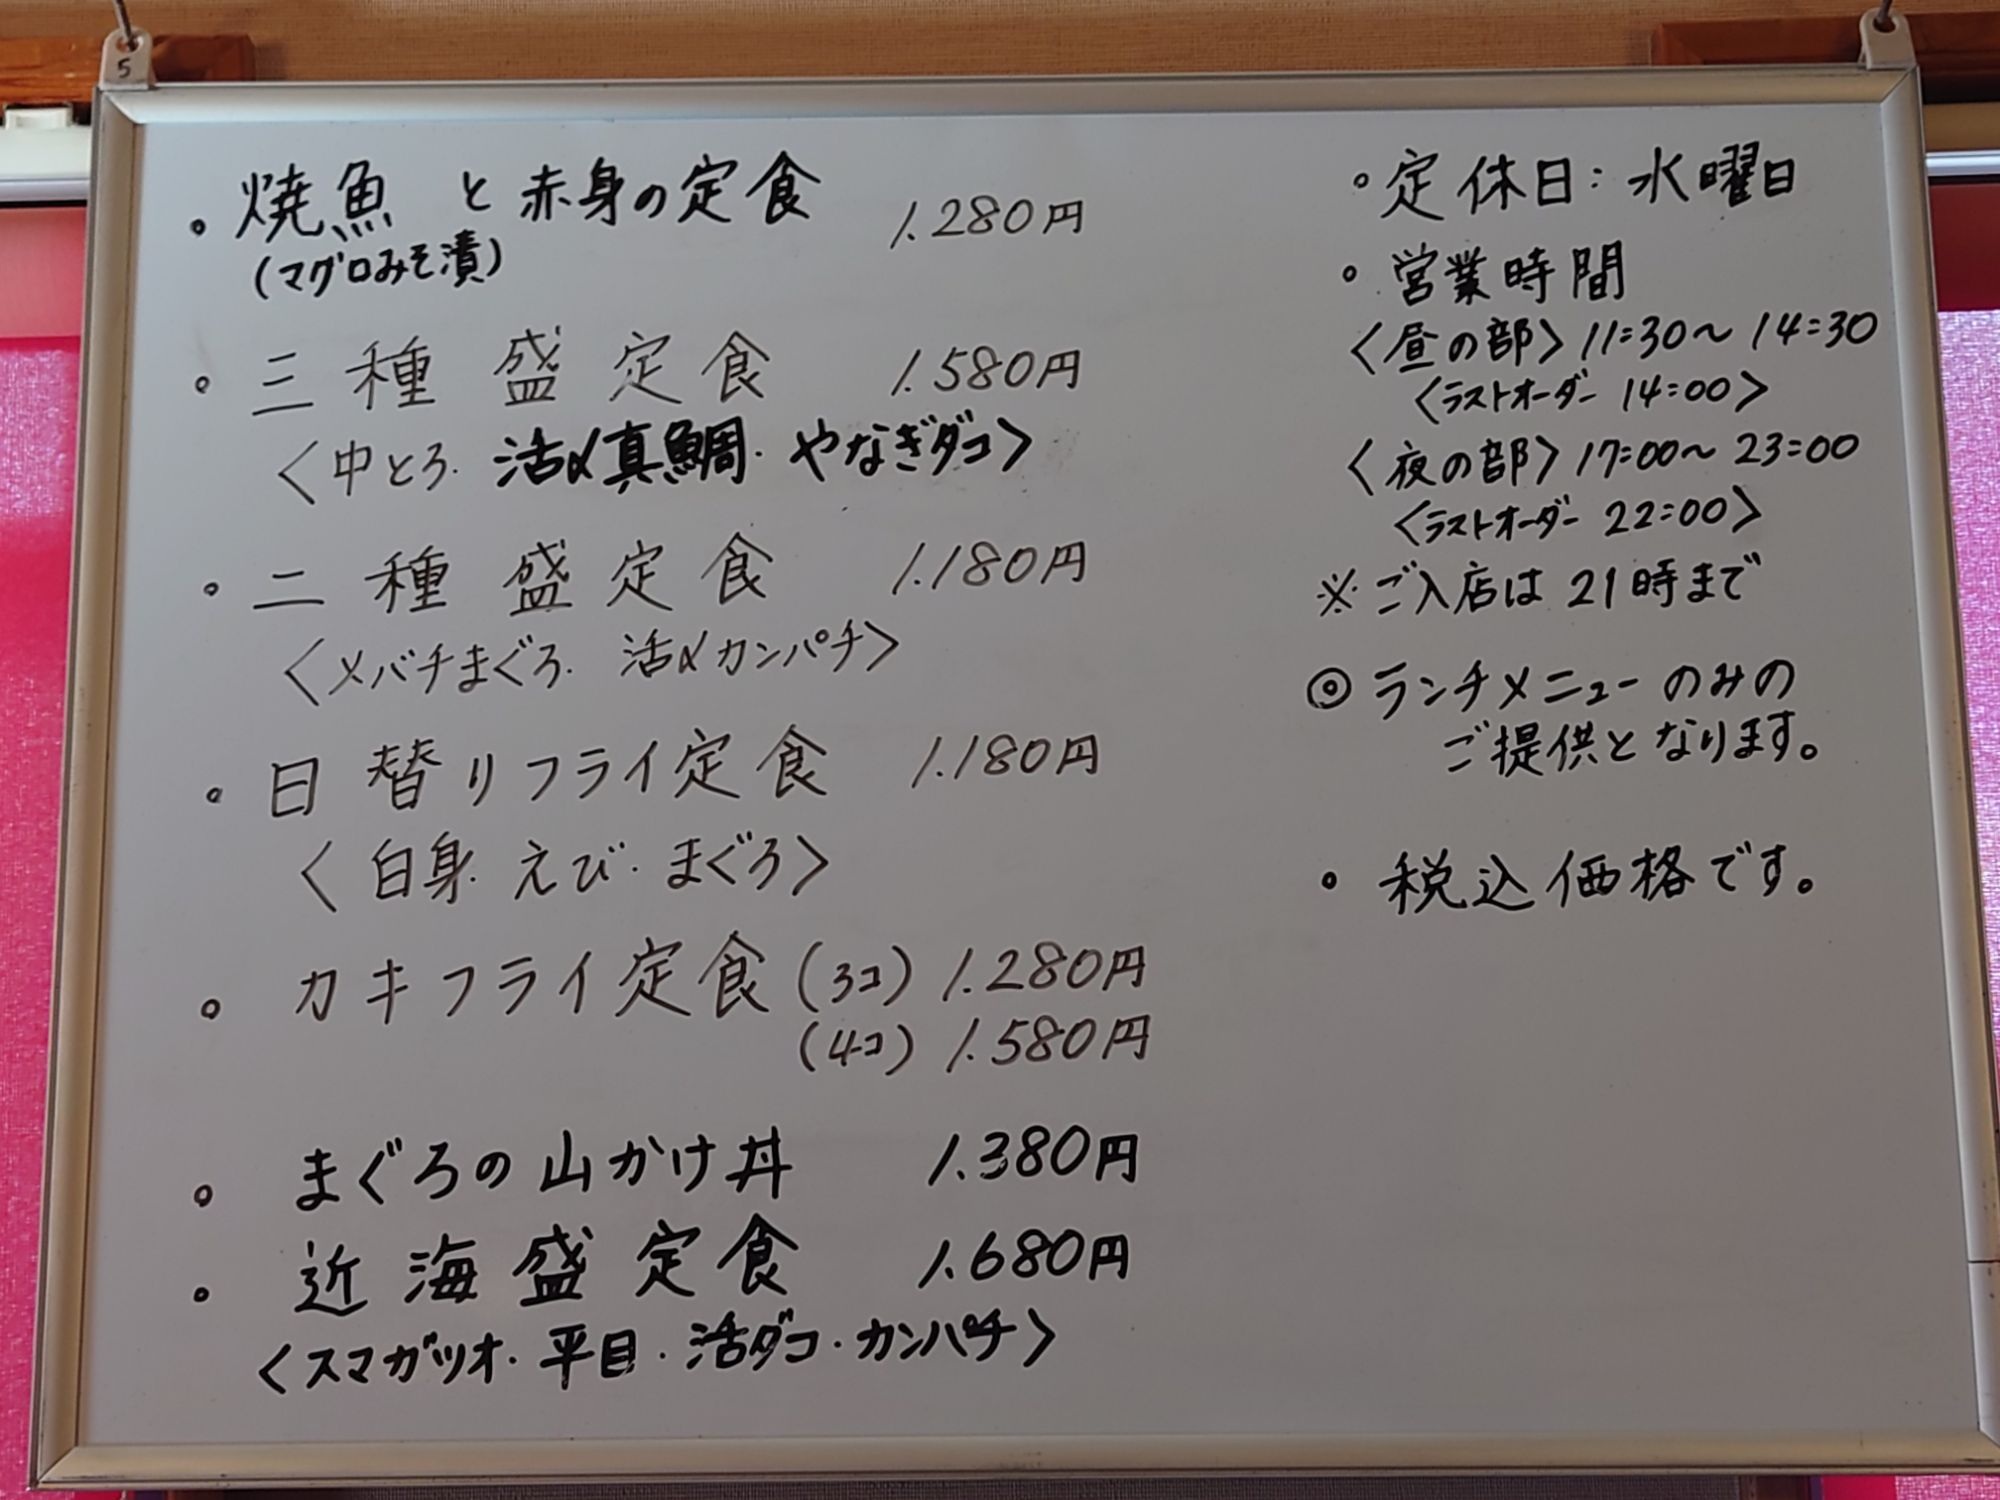 5
。焼魚 と 赤身の定食 1.280円
(マグロみそ漬)
。三種盛定食 1.580円
〈中とろ・活〆真鯛・やなぎダコ〉
。二種盛定食 1.180円
〈メバチまぐろ・活〆カンパチ〉
。日替りフライ定食 1.180円
〈白身・えび・まぐろ〉
。カキフライ定食(3コ) 1.280円
(4コ) 1.580円
。まぐろの山かけ丼 1.380円
。近海盛定食 1.680円
〈スマガツオ・平目・活ダコ・カンパチ〉
。定休日:水曜日
。営業時間
〈昼の部〉11:30〜14:30
〈ラストオーダー 14:00〉
〈夜の部〉17:00〜23:00
〈ラストオーダー 22:00〉
※ご入店は21時まで
◎ランチメニューのみの
ご提供となります。
・税込価格です。